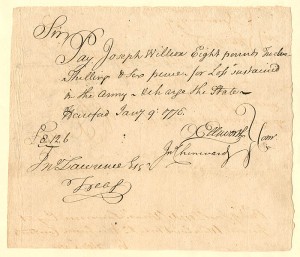 Sir
Pay Joseph Willcox Eight pounds Twelve
Shilling & Six pence for Loss sustained
in the Army & Charge the State
Hartford Jany 9th 1778
£8.12.6
O Ellsworth
Jn Chenward
Com
Jno Lawrence Esqr
Treasr